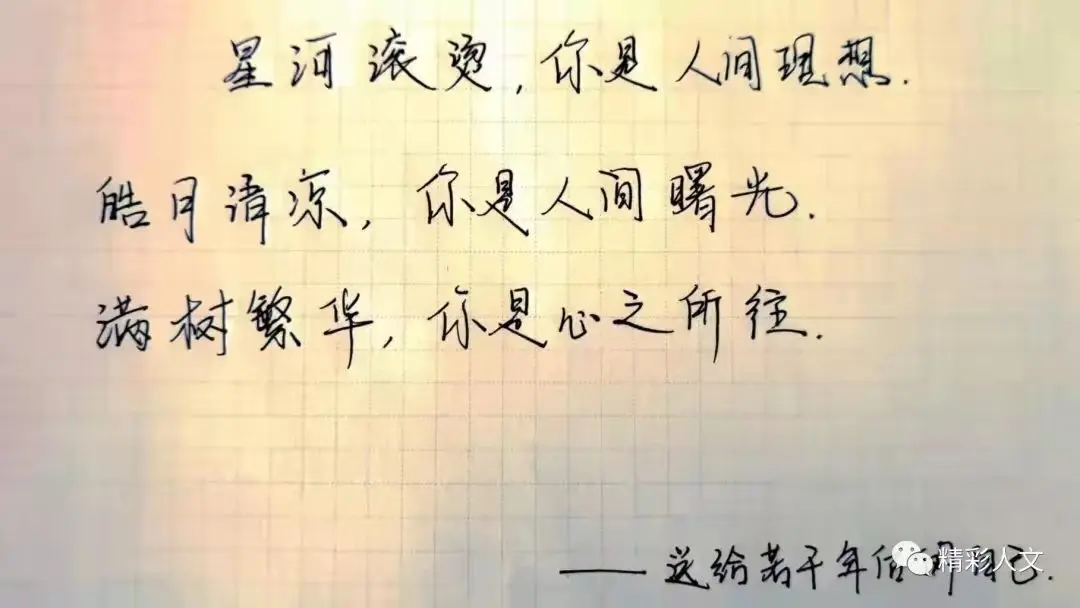 星河滚烫,你是人间理想.
皓月清凉,你是人间曙光.
满树繁华,你是心之所往.
——送给若干年后的自己.
精彩人文